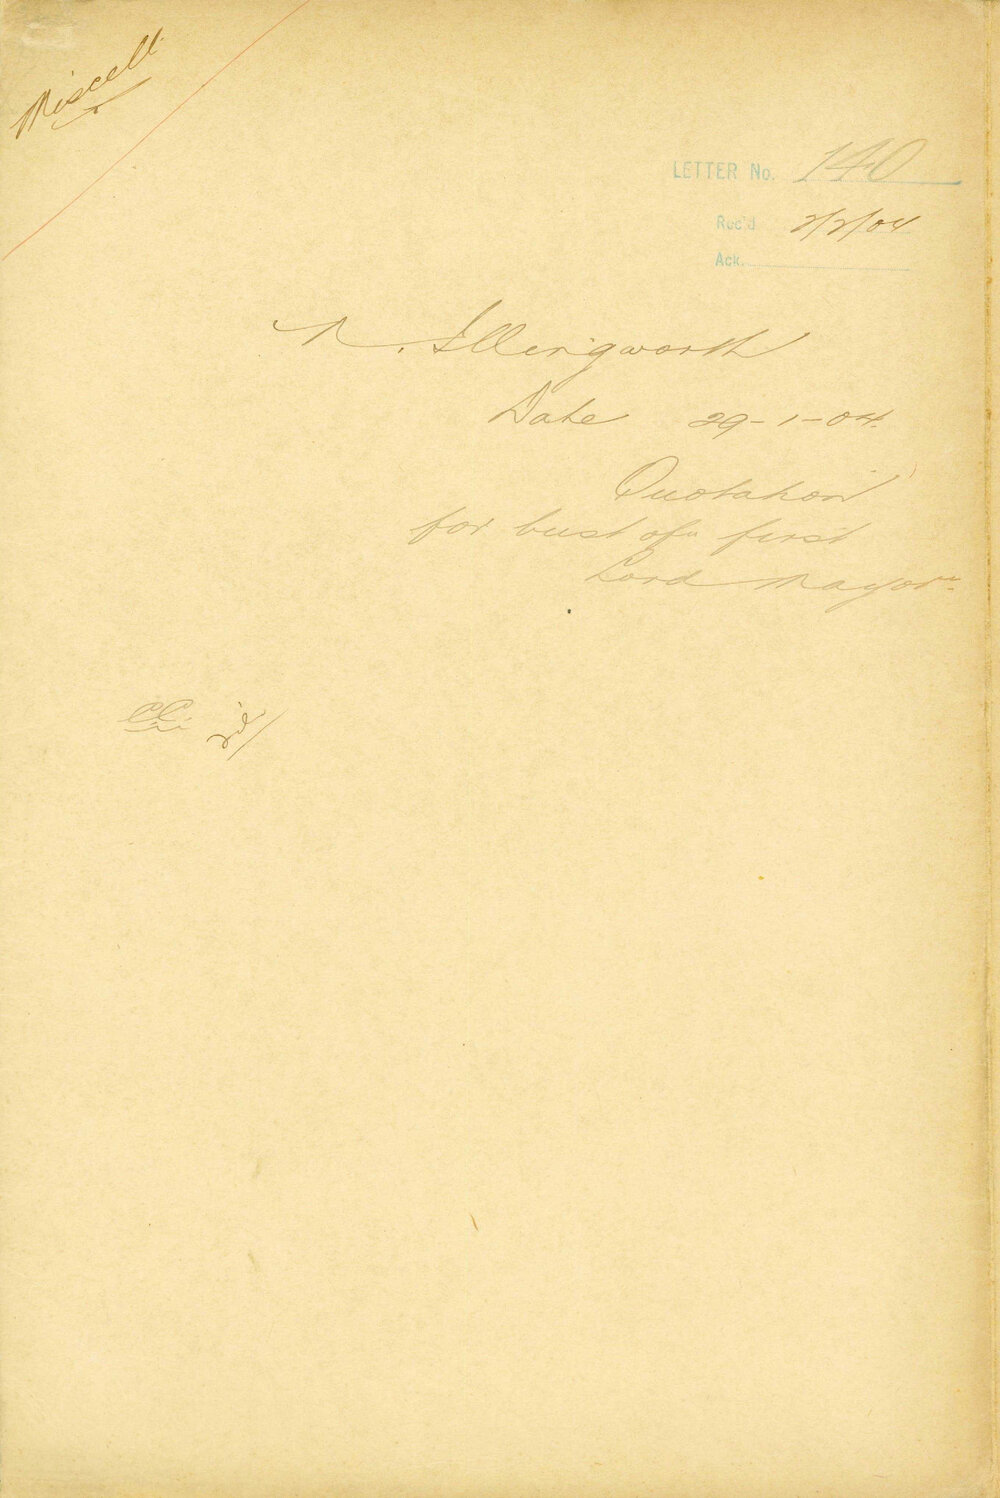 Miscell
LETTER No. 140
Rec'd 2/2/04
Ack.
N. Illingworth
Date 29-1-04.
Quotation
for bust of first
Lord Mayor